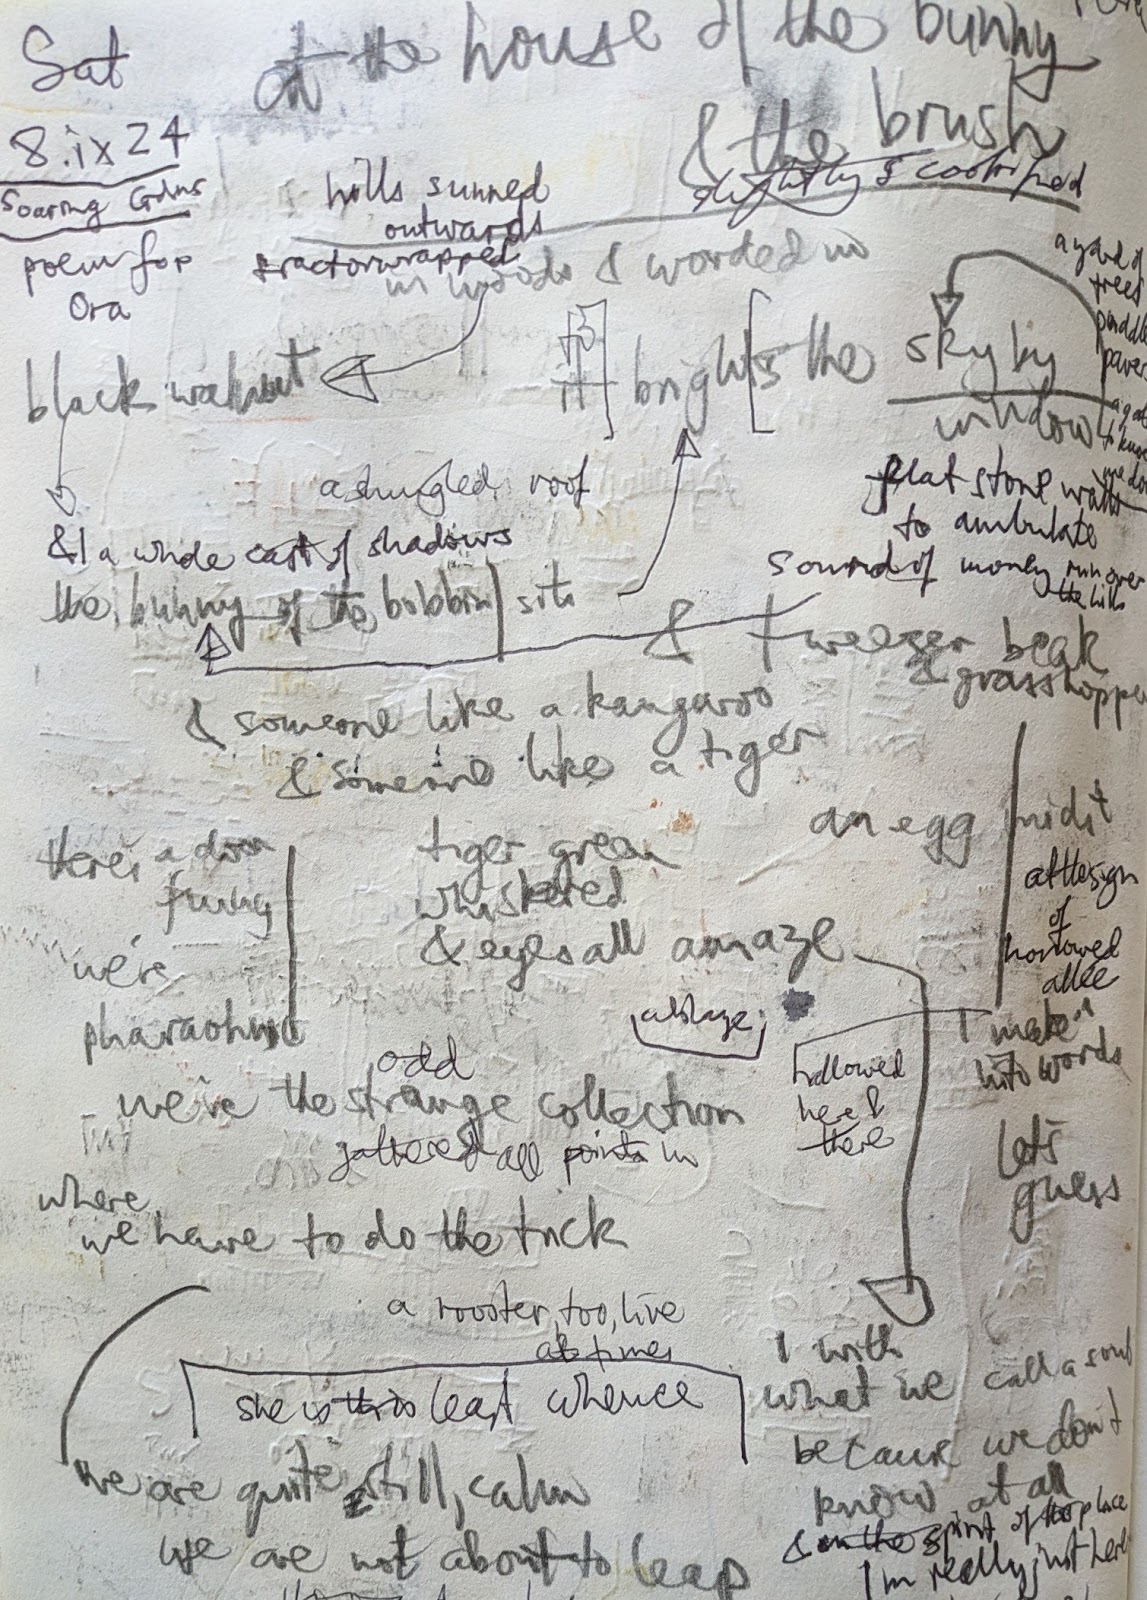 Sat
8.ix 24
Soaring Gdns
poem for
Ora
at the house of the bunny
& the brush
slightly
hills sunned
outwards
tractorwrapped
in woods & worded in
black walnut
it brights the
sky by
window
a yard of
trees
flat stone walls
to ambulate
a shingled roof
& a whole cast of shadows
sound of money run over
the hills
the bunny of the bobbin sits
& tweezer beak
& grasshopper
& someone like a kangaroo
& someone like a tiger
an egg midst
at the sign
of
allee
I make it
into words
let's
guess
there's a door
we're
tiger green
whiskered
& eyes all amaze
ablaze
hallowed
here &
there
odd
we're the strange collection
gathered all points in
where
we have to do the trick
a rooster, too, live
at times
she is this least whence
we are quite still, calm
we are not about to leap
I with
what we call a soul
because we don't
know at all
& on the spirit of the place
I'm really just here